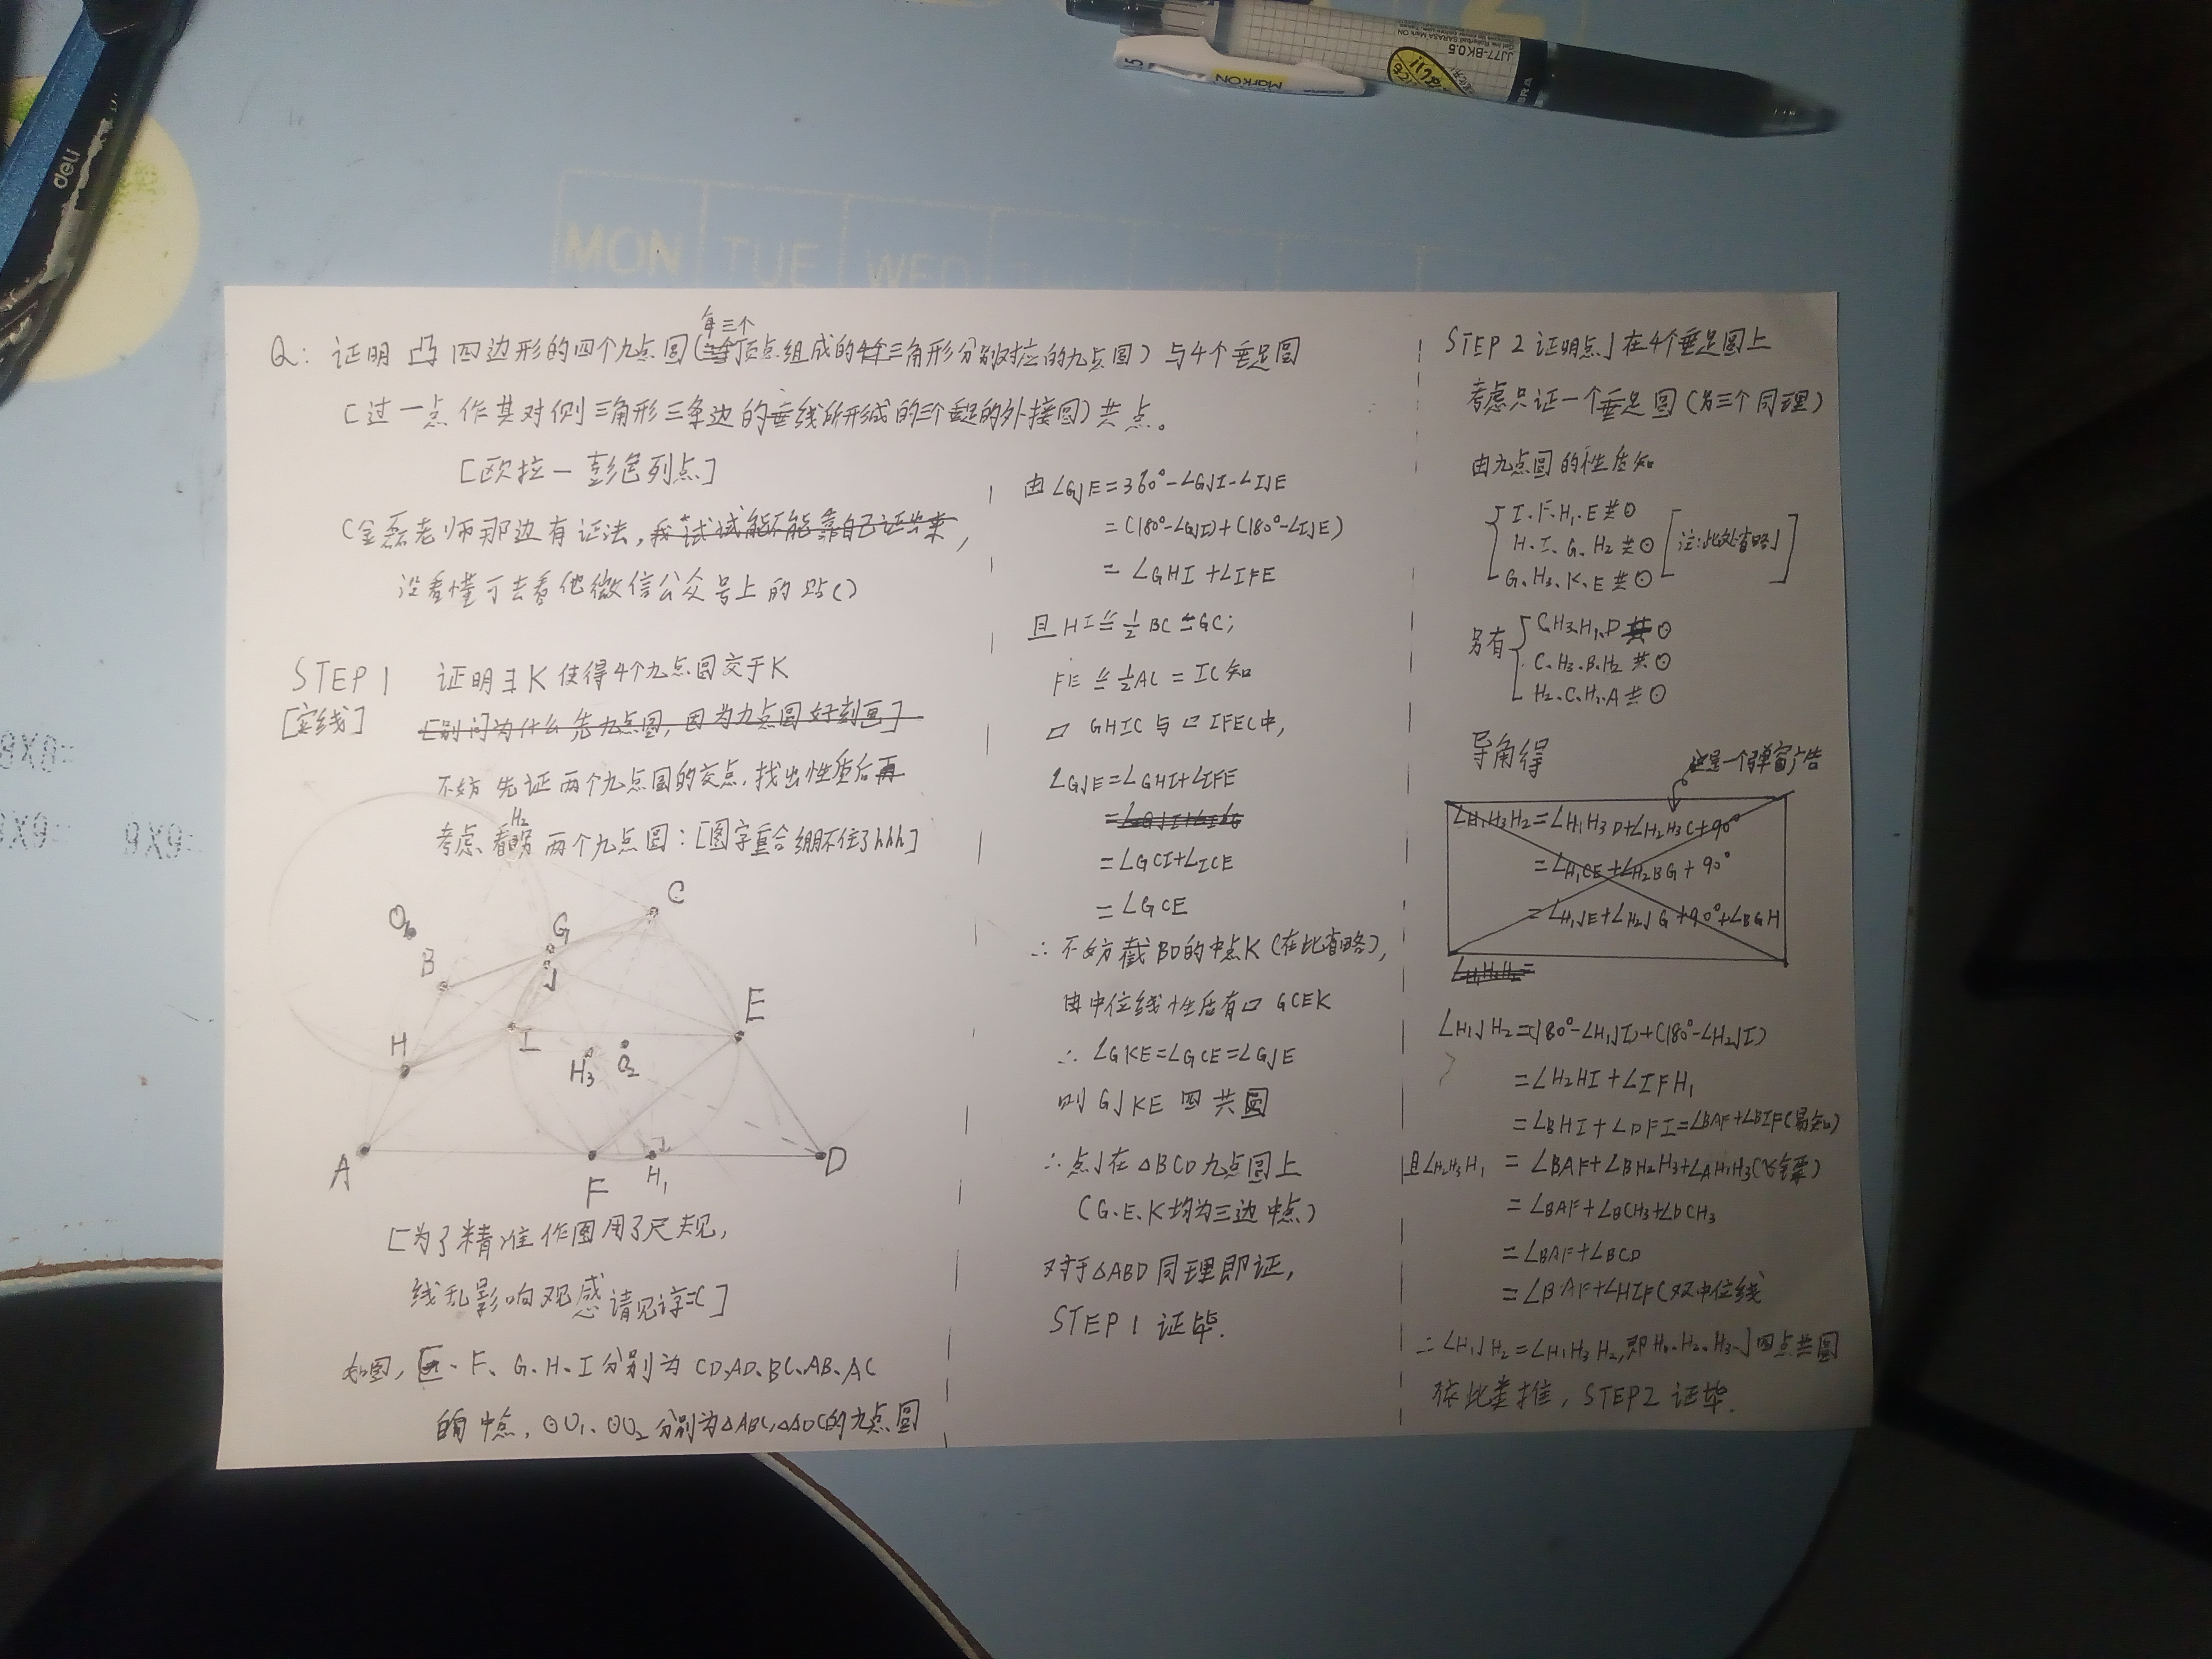 MON TUE WED
deli
JJ77-BK0.5
MarkON
Q: 证明 凸 四边形的四个九点圆(每三个顶点组成的三角形分别对应的九点圆)与4个垂足圆
(过一点作其对侧三角形三条边的垂线所形成的三个垂足的外接圆)共点。
[欧拉一彭色列点]
(金磊老师那边有证法,我试试能不能靠自己证出来,
没看懂可去看他微信公众号上的
STEP 1 证明∃K使得4个九点圆交于K
[实线] [别问为什么先九点圆,因为九点圆好刻画]
不妨先证两个九点圆的交点,找出性质后再
考虑 另两个九点圆:[图字重合绷不住了hhh]
H₂
C
O₁
G
B
J
E
H
I
H₃ O₂
A
F
H₁
D
[为了精准作图用了尺规,
线乱影响观感请见谅=(]
如图,E、F、G、H、I分别为CD、AD、BC、AB、AC
的中点,⊙O₁、⊙O₂分别为△ABC,△ADC的九点圆
由∠GJE=360°-∠GJI-∠IJE
=(180°-∠GJI)+(180°-∠IJE)
=∠GHI+∠IFE
且HI≌½BC≌GC;
FE≌½AC=IC知
▱GHIC与▱IFEC中,
∠GJE=∠GHI+∠IFE
=∠GCI+∠ICE
=∠GCE
∴不妨截BD的中点K(在此省略),
由中位线性质有▱GCEK
∴∠GKE=∠GCE=∠GJE
则GJKE四共圆
∴点J在△BCD九点圆上
(G、E、K均为三边中点)
对于△ABD同理即证,
STEP 1 证毕.
STEP 2 证明点J在4个垂足圆上
考虑只证一个垂足圆(另三个同理)
由九点圆的性质知
I、F、H₁、E共⊙
H、I、G、H₂共⊙ [注:此处省略J]
G、H₃、K、E共⊙
另有 C、H₃、H₁、D共⊙
C、H₃、B、H₂共⊙
H₂、C、H₁、A共⊙
导角得
这是一个弹窗广告
∠H₁H₃H₂=∠H₁H₃D+∠H₂H₃C+90°
=∠H₁CE+∠H₂BG+90°
=∠H₁JE+∠H₂JG+90°+∠BGH
∠H₁H₃H₂=
∠H₁JH₂=(180°-∠H₁JI)+(180°-∠H₂JI)
=∠H₂HI+∠IFH₁
=∠BHI+∠DFI=∠BAF+∠BIF(易知)
且∠H₂H₃H₁=∠BAF+∠BH₂H₃+∠AH₁H₃(飞镖)
=∠BAF+∠BCH₃+∠DCH₃
=∠BAF+∠BCD
=∠BAF+∠HIF(双中位线
∴∠H₁JH₂=∠H₁H₃H₂,即H₁、H₂、H₃、J四点共圆
依此类推,STEP2 证毕.